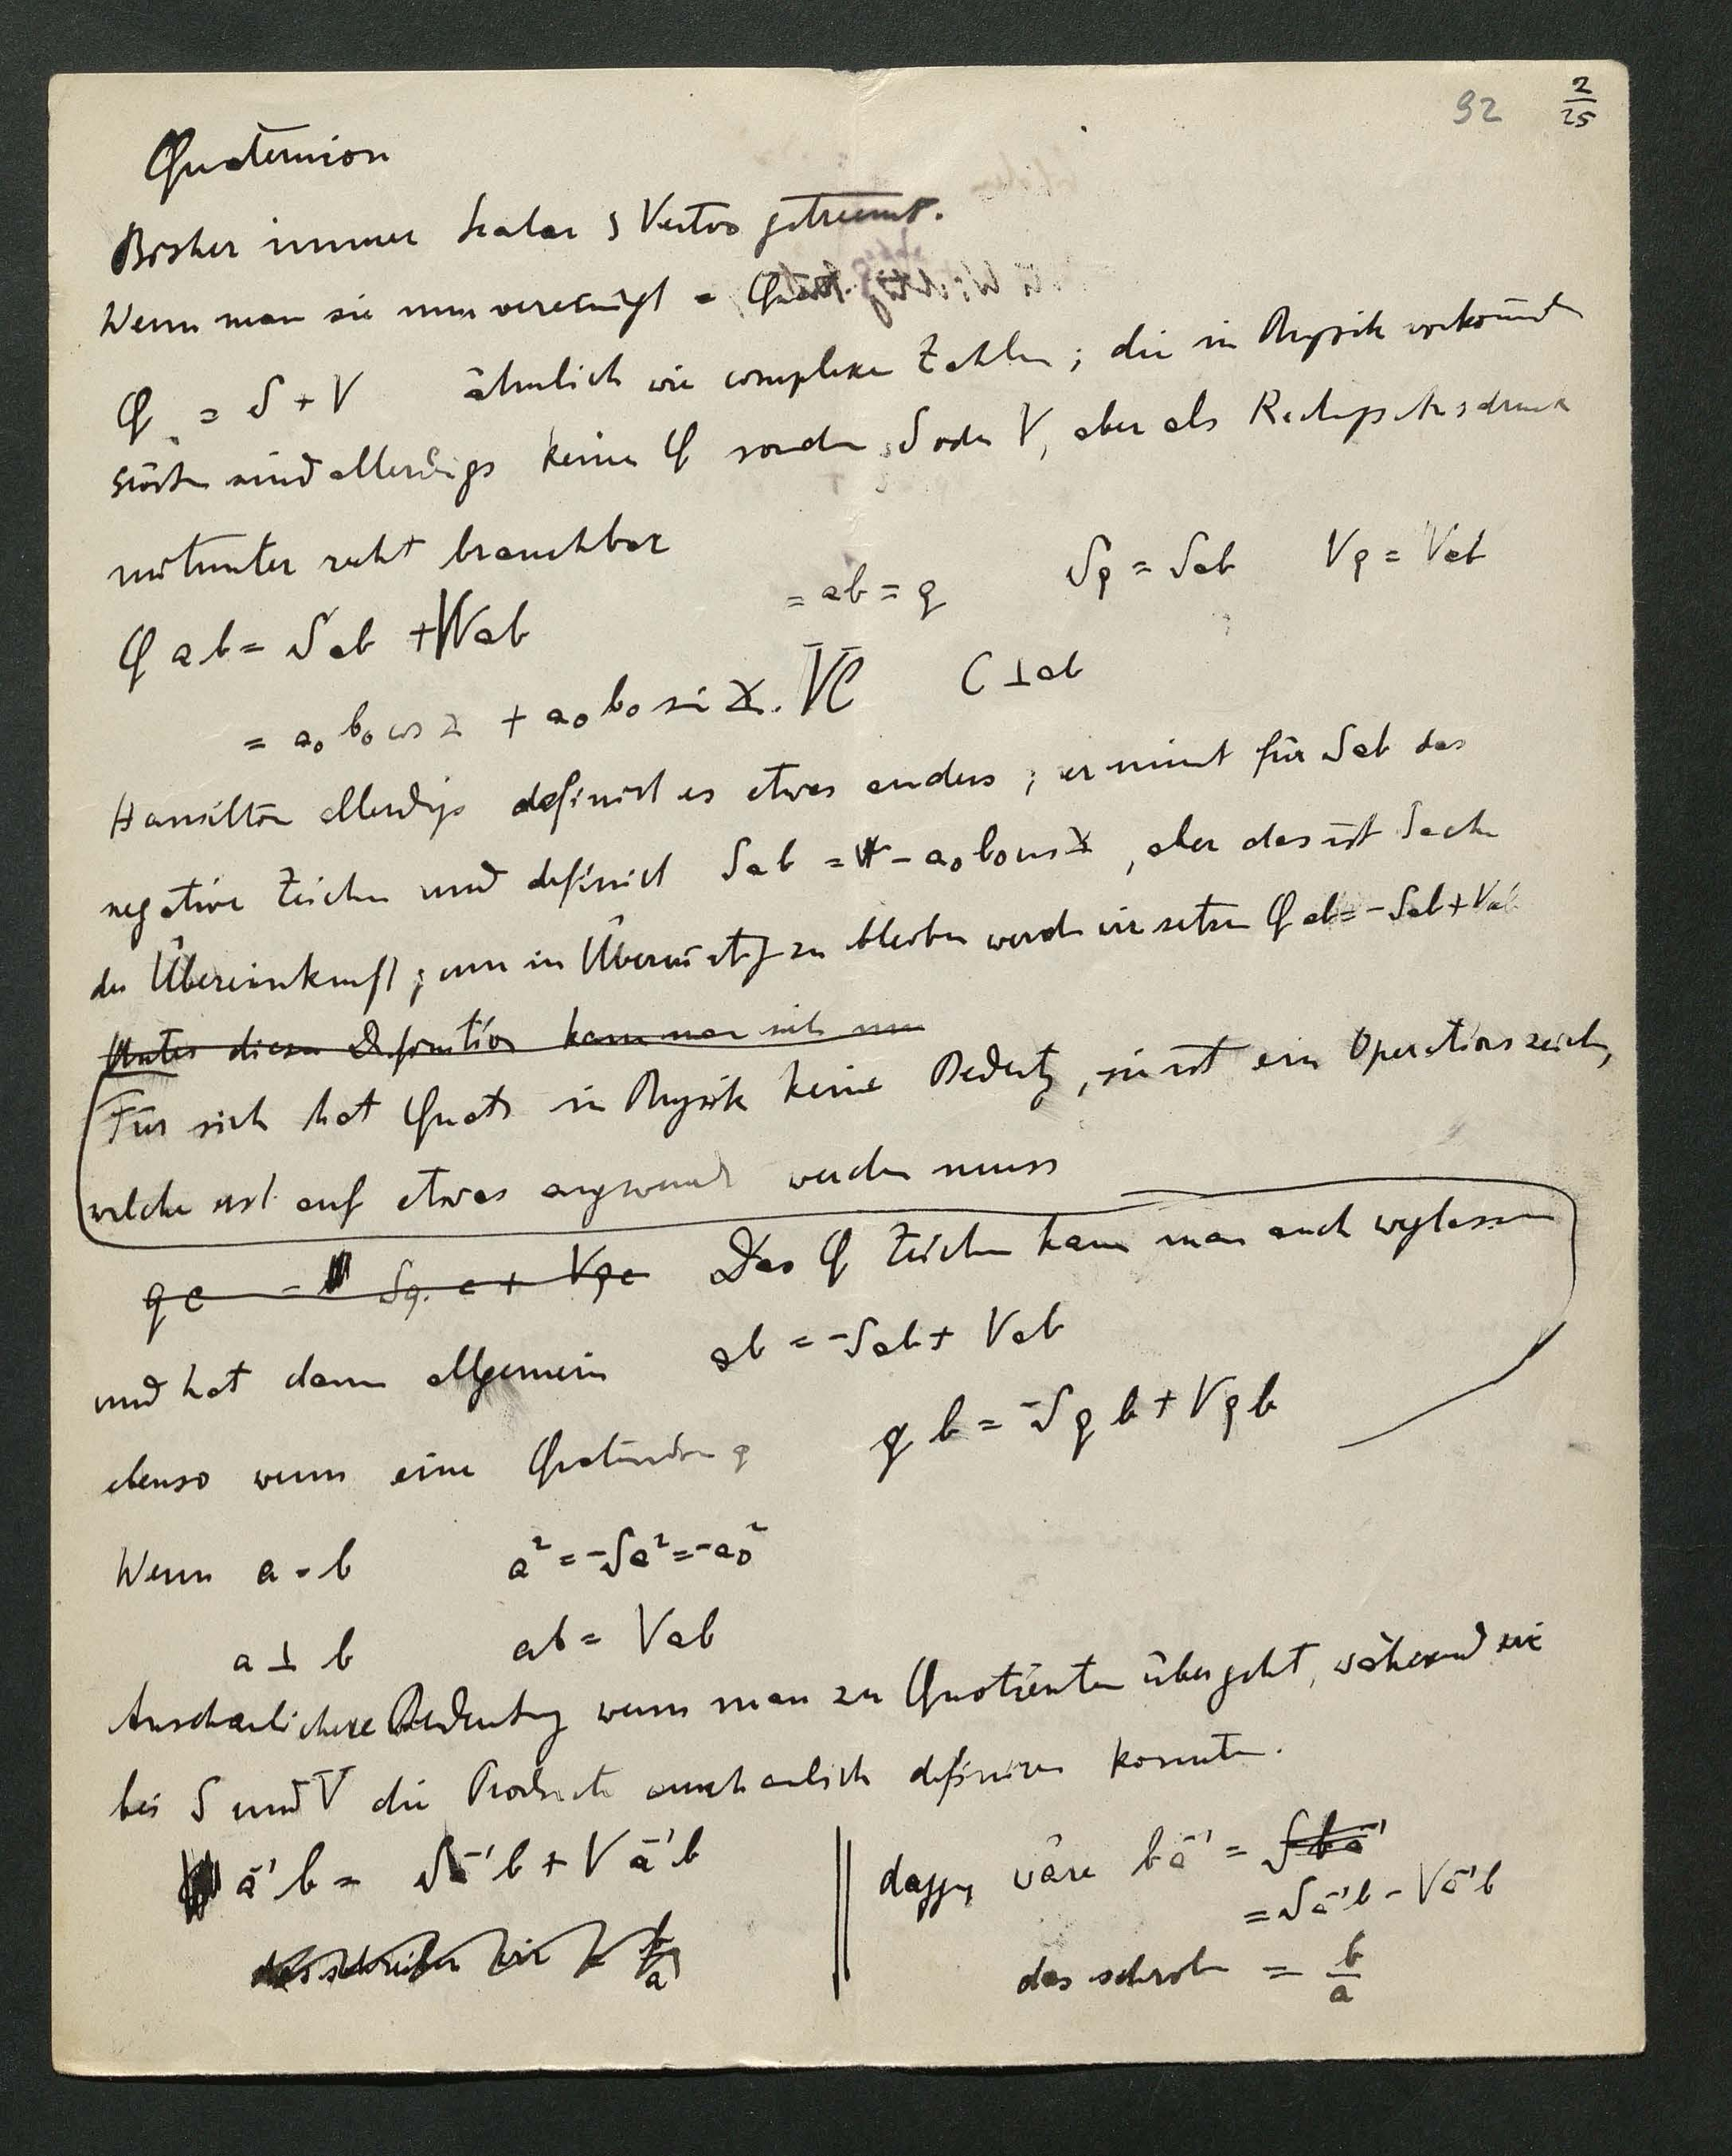 92 2/25
Quaternion
Bisher immer Skalar & Vektor getrennt.
Wenn man sie nun vereinigt = Quat.
Q = S + V ähnlich wie complexe Zahlen; die in Physik vorkommend
sind allerdigs keine Q sondern S oder V, aber als
mitunter recht brauchbar
Q ab = Sab + Vab = ab = q Sq = Sab Vq = Vab
= a₀ b₀ cos ∡ + a₀ b₀ sin ∡ . C ⊥ ab
Hamilton allerdigs definirt es etwas anders, er nimt für Sab das
negative Zeichen und definirt Sab = - a₀ b₀ cos ∡, aber das ist Sache
der Übereinkunft; um in zu bleiben werden wir setzen Q ab = - Sab + Vab
Unter dieser Definition kann man sich nun
Für sich hat Quat in Physik keine Bedeutg, sie ist ein Operationszeichen,
welche erst auf etwas angewendt werden muss
q c = Sq. c + Vqc Das Q Zeichen kann man auch weglassen
und hat dann allgemein ab = -Sab + Vab
ebenso wenn eine Quaternion q q b = -Sq b + Vq b
Wenn a = b a² = -Sa² = -a₀²
a ⊥ b ab = Vab
Anschaulichere Bedeutung wenn man zu Quotienten übergeht, während wir
bei S und V die Producte anschaulich definiren konnten.
a⁻¹ b = Sa⁻¹b + V a⁻¹b
das schreiben wir = b/a
dagg. wäre b a⁻¹ = S b a⁻¹
= Sa⁻¹b - Va⁻¹b
das schreib = b/a